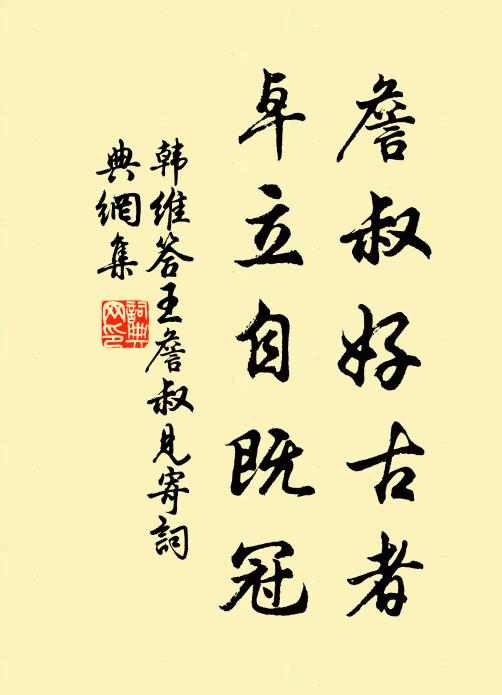 詹叔好古者
卓立自既冠
韩维答王詹叔见寄詞
典網集
詞典網印